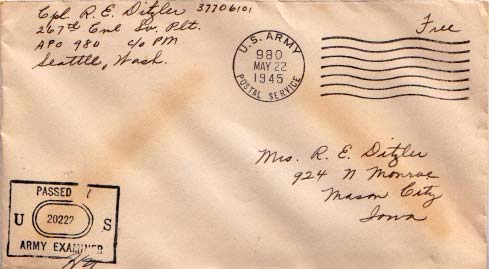 Cpl. R. E. Ditzler 37706101
267th Sv. Plt.
APO 980 c/o PM
Seattle, Wash.
U.S. ARMY
980
MAY 22
1945
POSTAL SERVICE
Free
Mrs. R. E. Ditzler
924 N Monroe
Mason City
Iowa
PASSED
U 20222 S
ARMY EXAMINER